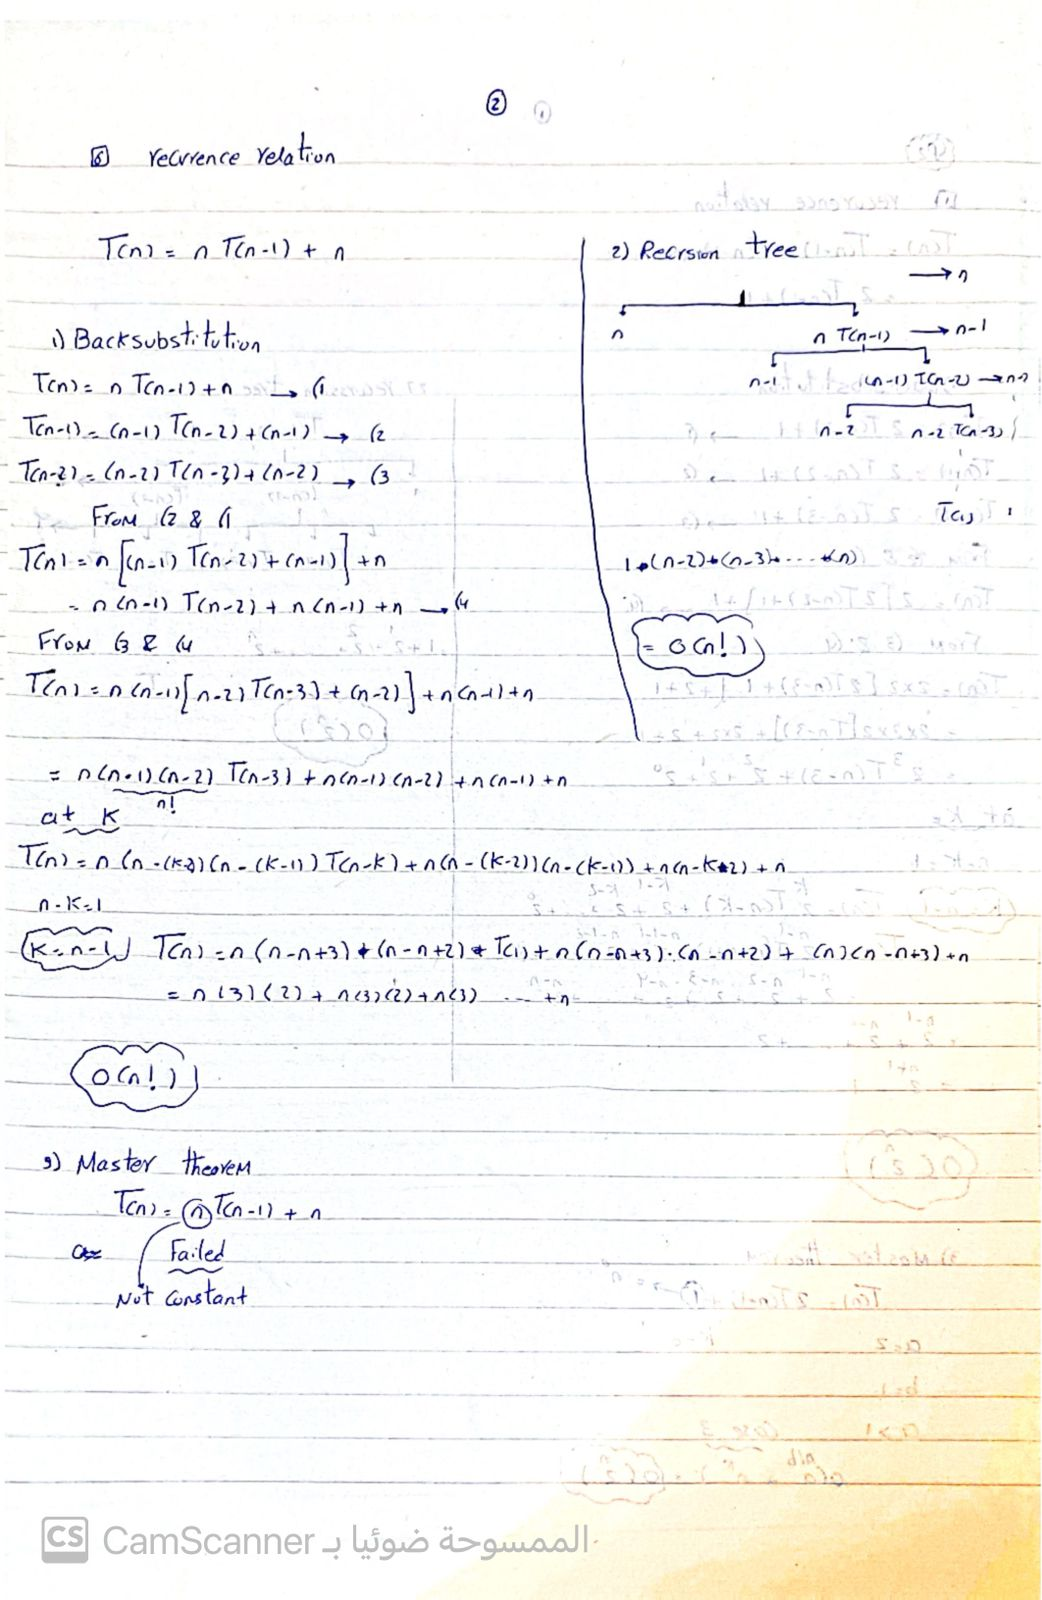 ②
6 recurrence relation
T(n) = n T(n-1) + n
1) Backsubstitution
T(n) = n T(n-1) + n → (1
T(n-1) = (n-1) T(n-2) + (n-1) → (2
T(n-2) = (n-2) T(n-3) + (n-2) → (3
From (2 & (1
T(n) = n [(n-1) T(n-2) + (n-1)] + n
= n (n-1) T(n-2) + n (n-1) + n → (4
From (3 & (4
T(n) = n (n-1) [n-2) T(n-3) + (n-2)] + n (n-1) + n
= n (n-1) (n-2) T(n-3) + n (n-1) (n-2) + n (n-1) + n
n!
at K
T(n) = n (n-(K-2) (n-(K-1)) T(n-K) + n(n-(K-2)) (n-(K-1)) + n(n-K+2) + n
n-K=1
K=n-1 T(n) = n (n-n+3) * (n-n+2) * T(1) + n (n-n+3) . (n-n+2) + (n) (n-n+3) + n
= n (3) (2) + n(3) (2) + n(3) ... + n
O(n!)
2) Recrsion tree
→ n
n n T(n-1) → n-1
n-1 (n-1) T(n-2) → n-2
n-2 n-2 T(n-3)
T(1) 1
1+(n-2)+(n-3)+....+(n)
= O(n!)
3) Master theorem
T(n) = n T(n-1) + n
Failed
Not constant
CS CamScanner الممسوحة ضوئيا بـ